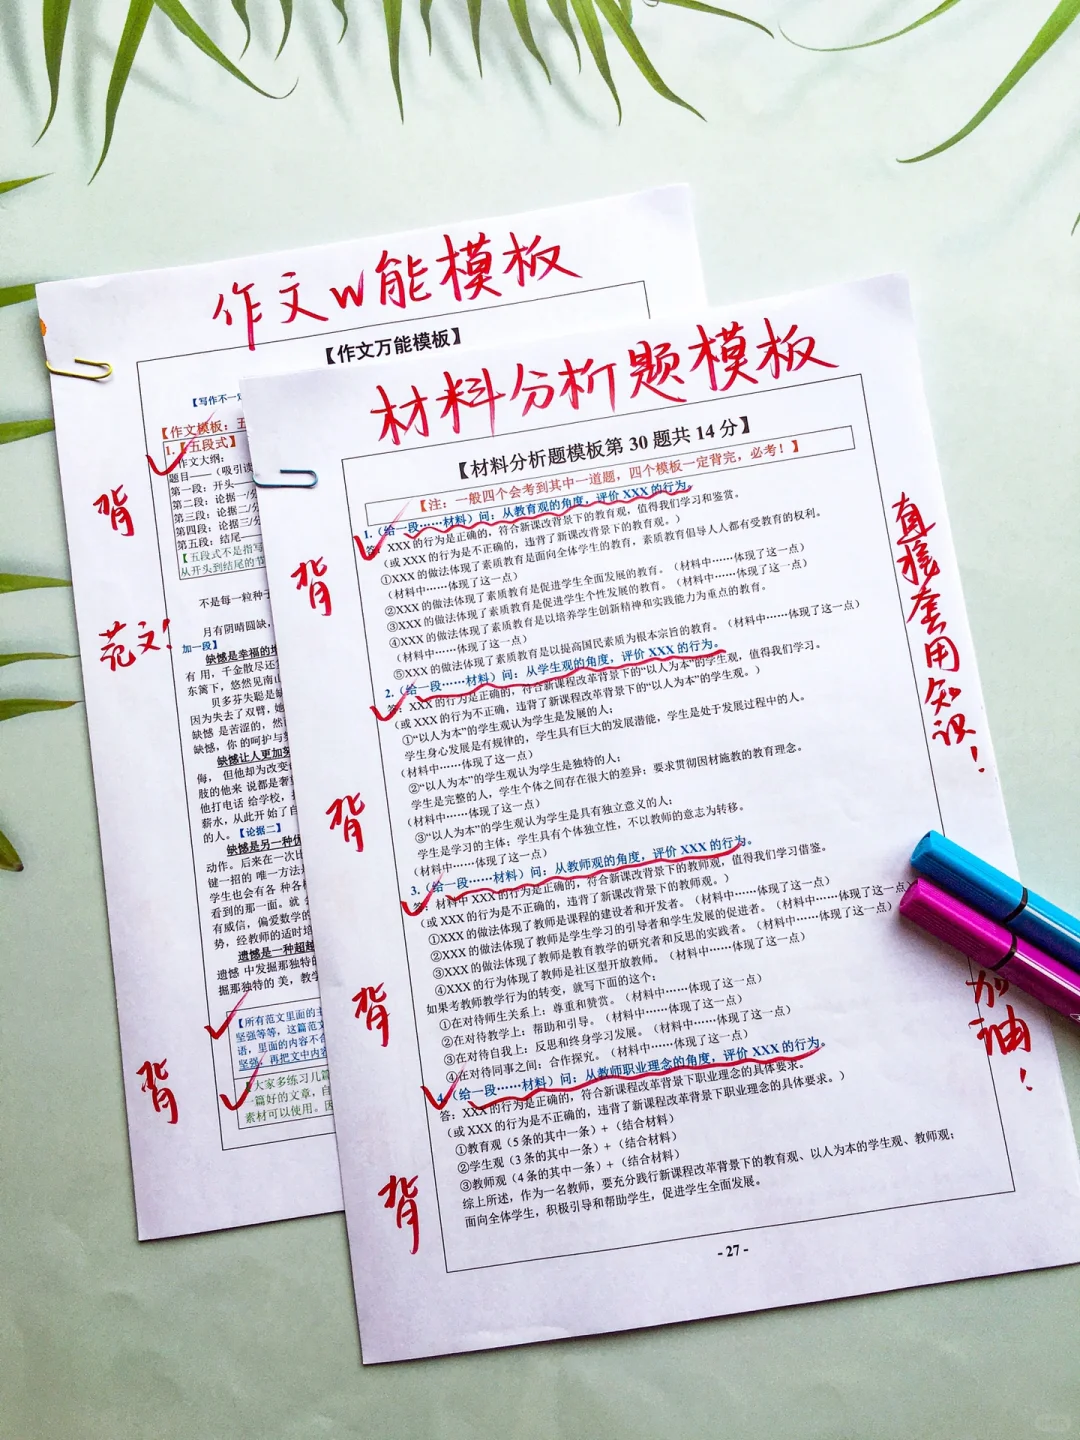 作文w能模板
【作文万能模板】
【写作不一定
【作文模板：五
1.【五段式】
作文大纲：
题目——（吸引读
第一段：开头—
第二段：论据一/分
第三段：论据二/分
第四段：论据三/分
第五段：结尾——
【五段式不是指写
从开头到结尾的节
不是每一粒种子
月有阴晴圆缺，
加一段】
缺憾是幸福的增
有用，千金散尽还
东篱下，悠然见南山
贝多芬失聪是缺
因为失去了双臂，她
缺憾 是苦涩的，然
缺憾，你 的呵护与
缺憾让人更加努
侮， 但他却为改变
肢的他来 说都是奢
他打电话 给学校，
薪水，从此开始了自
的人。【论据二】
缺憾是另一种优
动作。后来在一次比
键一招的 唯一方法
学生也会有各 种各样
看到的那一面。就
有威信，偏爱数学的
势，经教师的适时培
遗憾是一种超越
遗憾 中发掘那独特的
掘那独特的 美，教学
【所有范文里面的主
坚强等等，这篇范文
语，里面的内容不合
坚强，再把文中内容
【大家多练习几篇
一篇好的文章，自
素材可以使用。因
背
范文！
背
材料分析题模板
【材料分析题模板第 30 题共 14 分】
【注：一般四个会考到其中一道题，四个模板一定背完，必考！】
1.（给一段……材料）问：从教育观的角度，评价 XXX 的行为。
答：XXX 的行为是正确的，符合新课改背景下的教育观，值得我们学习和鉴赏。
（或 XXX 的行为是不正确的，违背了新课改背景下的教育观。）
①XXX 的做法体现了素质教育是面向全体学生的教育，素质教育倡导人人都有受教育的权利。
（材料中……体现了这一点）
②XXX 的做法体现了素质教育是促进学生全面发展的教育。（材料中……体现了这一点）
③XXX 的做法体现了素质教育是促进学生个性发展的教育。（材料中……体现了这一点）
④XXX 的做法体现了素质教育是以培养学生创新精神和实践能力为重点的教育。
（材料中……体现了这一点）
⑤XXX 的做法体现了素质教育是以提高国民素质为根本宗旨的教育。（材料中……体现了这一点）
2.（给一段……材料）问：从学生观的角度，评价 XXX 的行为。
答：XXX 的行为是正确的，符合新课程改革背景下的“以人为本”的学生观，值得我们学习。
（或 XXX 的行为不正确，违背了新课程改革背景下的“以人为本”的学生观。）
①“以人为本”的学生观认为学生是发展的人；
学生身心发展是有规律的，学生具有巨大的发展潜能，学生是处于发展过程中的人。
（材料中……体现了这一点）
②“以人为本”的学生观认为学生是独特的人；
学生是完整的人，学生个体之间存在很大的差异；要求贯彻因材施教的教育理念。
（材料中……体现了这一点）
③“以人为本”的学生观认为学生是具有独立意义的人；
学生是学习的主体；学生具有个体独立性，不以教师的意志为转移。
（材料中……体现了这一点）
3.（给一段……材料）问：从教师观的角度，评价 XXX 的行为。
答：材料中 XXX 的行为是正确的，符合新课改背景下的教师观，值得我们学习借鉴。
（或 XXX 的行为是不正确的，违背了新课改背景下的教师观。）
①XXX 的做法体现了教师是课程的建设者和开发者。（材料中……体现了这一点）
②XXX 的做法体现了教师是学生学习的引导者和学生发展的促进者。（材料中……体现了这一点）
③XXX 的做法体现了教师是教育教学的研究者和反思的实践者。（材料中……体现了这一点）
④XXX 的行为体现了教师是社区型开放教师。（材料中……体现了这一点）
如果考教师教学行为的转变，就写下面的这个：
①在对待师生关系上：尊重和赞赏。（材料中……体现了这一点）
②在对待教学上：帮助和引导。（材料中……体现了这一点）
③在对待自我上：反思和终身学习发展。（材料中……体现了这一点）
④在对待同事之间：合作探究。（材料中……体现了这一点）
4.（给一段……材料）问：从教师职业理念的角度，评价 XXX 的行为。
答：XXX 的行为是正确的，符合新课程改革背景下职业理念的具体要求。
（或 XXX 的行为是不正确的，违背了新课程改革背景下职业理念的具体要求。）
①教育观（5 条的其中一条）+（结合材料）
②学生观（3 条的其中一条）+（结合材料）
③教师观（4 条的其中一条）+（结合材料）
综上所述，作为一名教师，要充分践行新课程改革背景下的教育观、以人为本的学生观、教师观；
面向全体学生，积极引导和帮助学生，促进学生全面发展。
- 27 -
背
背
背
背
直接套用知识！
加油！